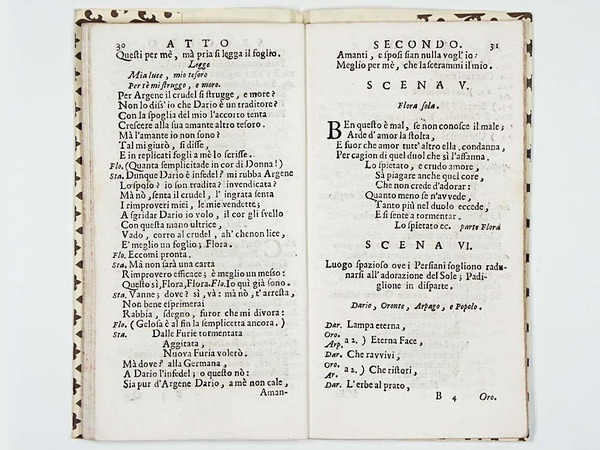 30 ATTO
Questi per mè, mà pria si legga il foglio.
Legge
Mia luce, mio tesoro
Per tè mi struggo, e moro.
Per Argene il crudel si strugge, e more?
Non lo diss' io che Dario è un traditore?
Con la spoglia del mio l'accorto tenta
Crescere alla sua amante altro tesoro.
Mà l'amante io non sono?
Tal mi giurò, si disse,
E in replicati fogli a mè lo scrisse.
Flo. (Quanta semplicitade in cor di Donna!)
Sta. Dunque Dario è infedel? mi rubba Argene
Lo sposo? io son tradita? invendicata?
Mà nò, senta il crudel, l' ingrata senta
I rimproveri miei, le mie vendette;
A sgridar Dario io volo, il cor gli svello
Con questa mano ultrice,
Vado, corro al crudel, ah' che non lice,
E' meglio un foglio; Flora.
Flo. Eccomi pronta.
Sta. Mà non sarà una carta
Rimprovero efficace; è meglio un messo:
Questo sì, Flora, Flora. Flo. Io quì già sono.
Sta. Vanne; dove? sì, và: mà nò, t' arresta,
Non bene esprimerai
Rabbia, sdegno, furor che mi divora:
Flo. (Gelosa è al fin la semplicetta ancora.)
Sta. Dalle Furie tormentata
Aggitata,
Nuova Furia volerò.
Mà dove? alla Germana,
A Dario l'infedel; o questo nò:
Sia pur d'Argene Dario, a mè non cale,
Aman-
SECONDO. 31
Amanti, e sposi sian nulla vogl' io:
Meglio per mè, che lascerammi il mio.
SCENA V.
Flora sola.
BEn questo è mal, se non conosce il male;
Arde d'amor la stolta,
E fuor che amor tutt' altro ella condanna,
Per cagion di quel duol che sì l'affanna.
Lo spietato, e crudo amore
Sà piagare anche quel core,
Che non crede d'adorar:
Quanto meno se n'avvede,
Tanto più nel duolo eccede,
E si sente a tormentar.
Lo spietato ec. parte Flora
SCENA VI.
Luogo spazioso ove i Persiani sogliono radu-
narsi all' adorazione del Sole; Padi-
glione in disparte.
Dario, Oronte, Arpago, e Popolo.
Dar. Lampa eterna,
Oro.
Arp. a 2. ) Eterna Face,
Dar. Che ravvivi,
Oro.
Ar. a 2. ) Che ristori,
Dar. L'erbe al prato,
B 4 Oro.